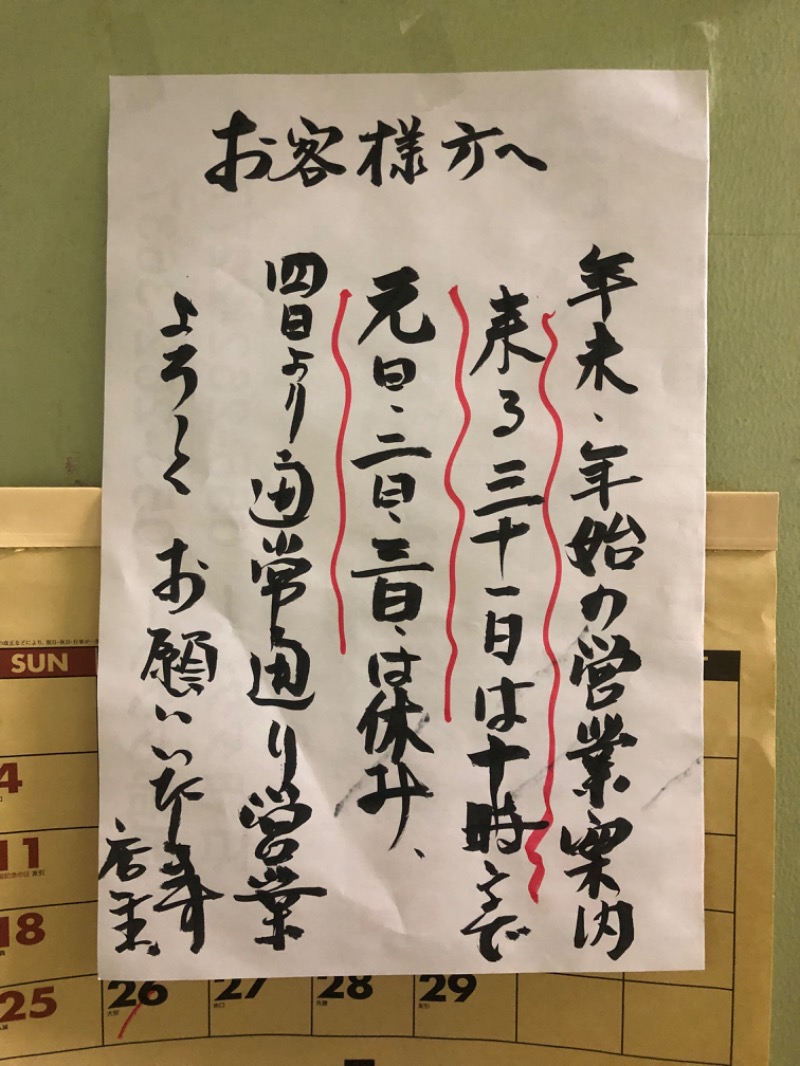 お客様方へ
年末、年始の営業案内
来る三十一日は十時まで
元日、二日、三日、は休み、
四日より通常通り営業
よろしくお願いいたします
店主
SUN
4
11
18
25
26
27
28
29
大安
友引